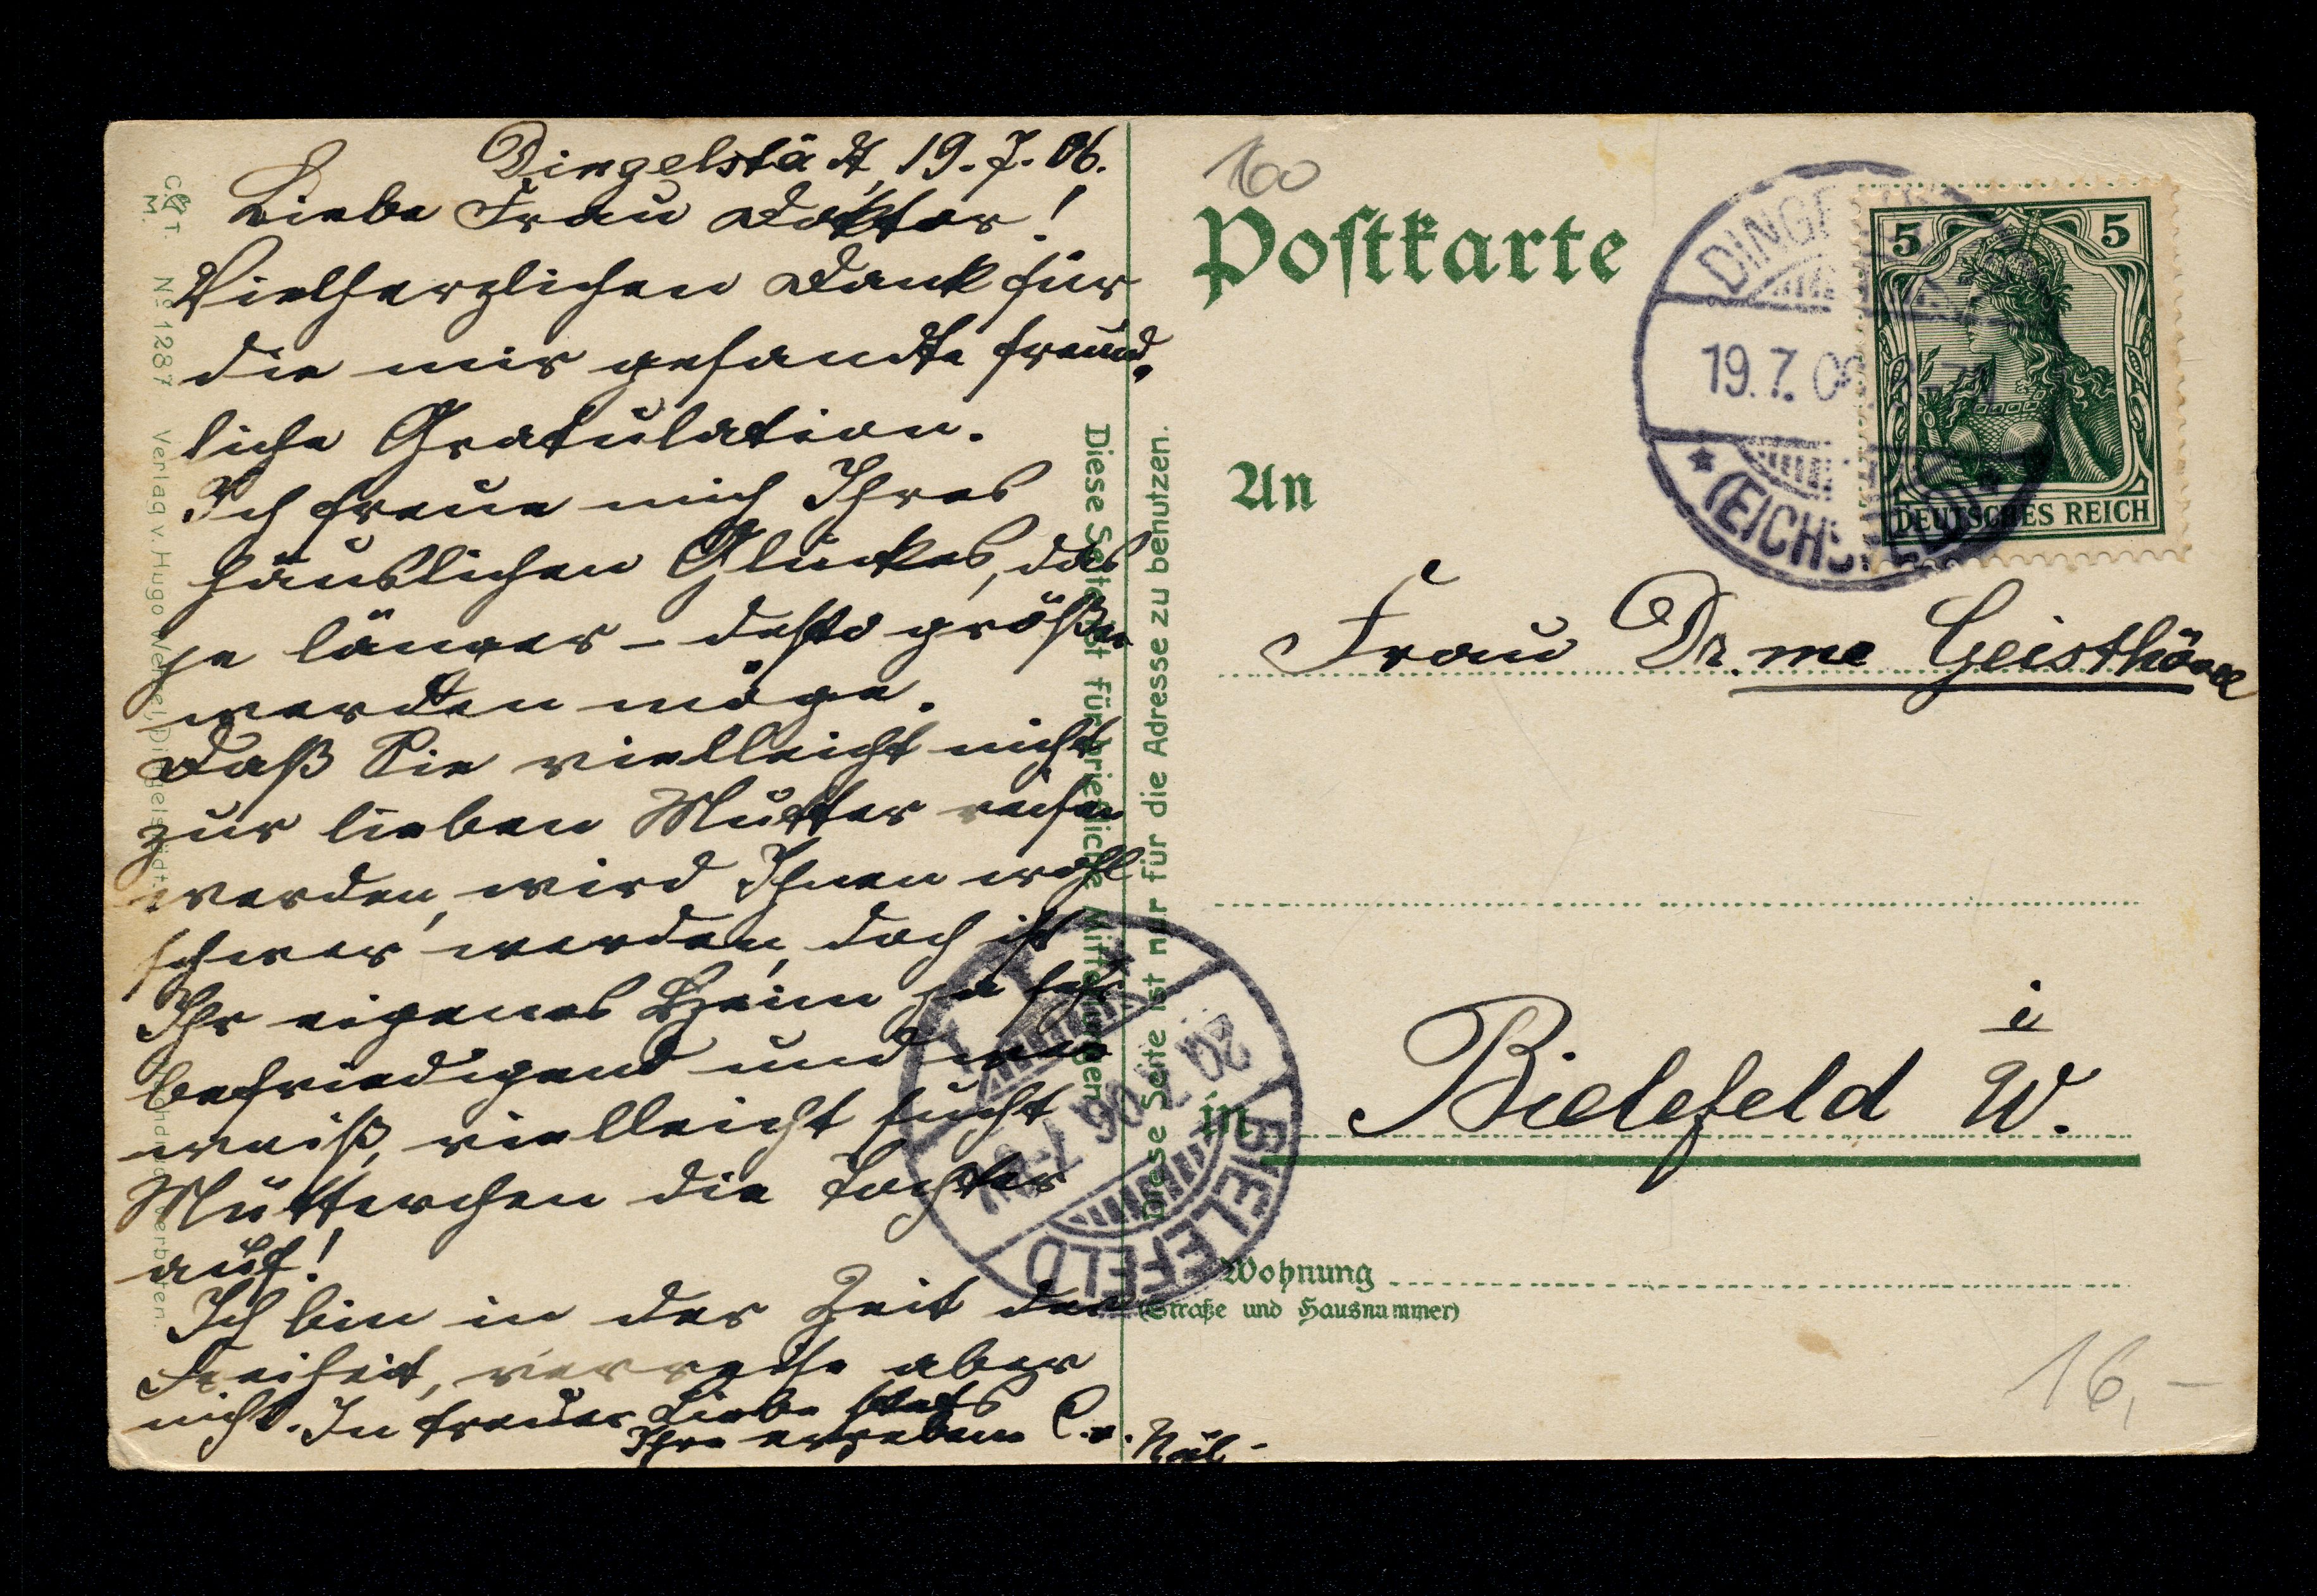 Dingelstädt, 19.7.06.
Liebe Frau Doktor!
Vielherzlichen Dank für
die mir gesandte freund-
liche Gratulation.
Ich freue mich Ihres
häuslichen Glückes, das
je länger – desto größer
werden möge.
Daß Sie vielleicht nicht
zur lieben Mutter reisen
werden, wird Ihnen wohl
schwer werden, doch ist
Ihr eigenes Heim ja sehr
befriedigend und wer
weiß, vielleicht sucht
Mütterchen die Tochter
auf!
Ich bin in der Zeit der
Freiheit, verreise aber
nicht. In treuer Liebe stets
Ihre ergebene C. v.
C. & T. M. No 1287 Verlag v. Hugo Dingelstädt. verboten.
Diese Seite ist für briefliche Mitteilungen
Diese Seite ist nur für die Adresse zu benutzen.
160
Postkarte
5 5
DEUTSCHES REICH
19.7.06
(EICHSFELD)
An
Frau Dr. me
in Bielefeld i W.
20.7.06 7-8N
BIELEFELD
Wohnung
(Straße und Hausnummer)
16,-